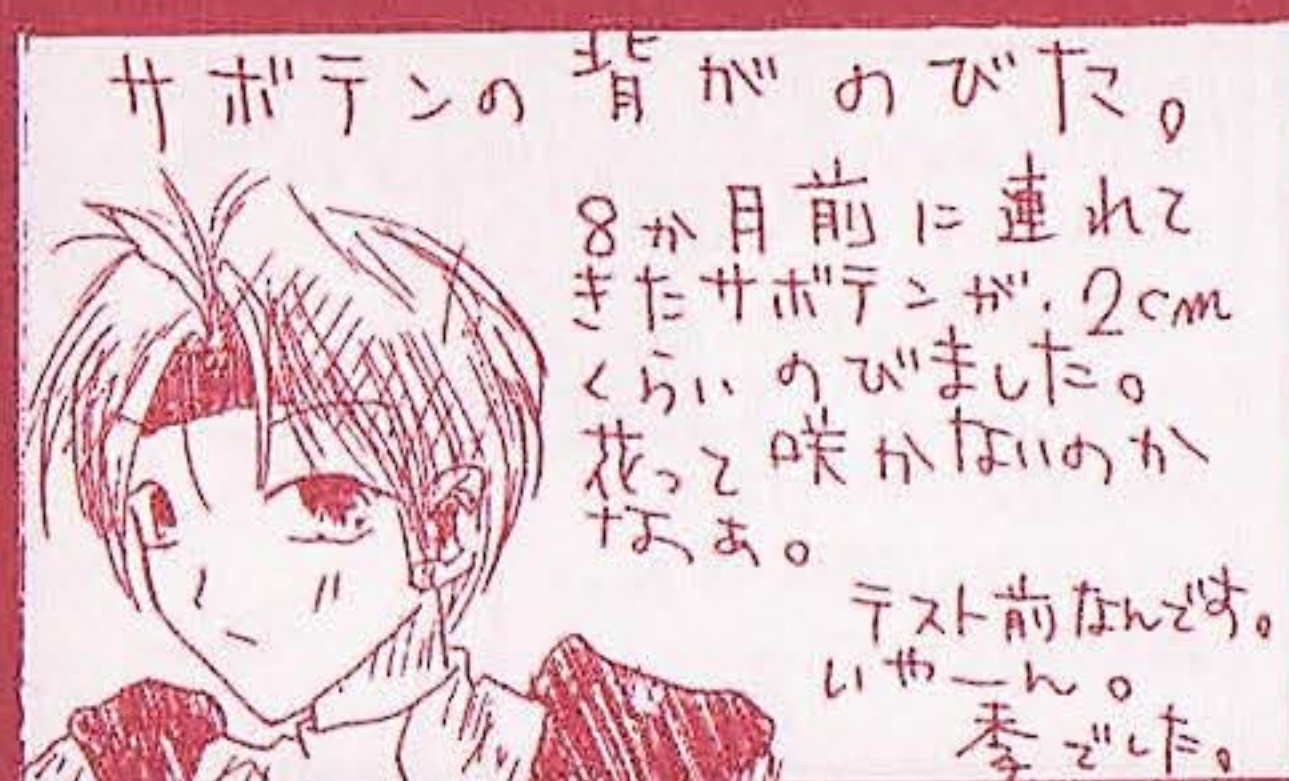 サボテンの背がのびた。
8か月前に連れて
きたサボテンが、2cm
くらいのびました。
花って咲かないのか
なぁ。
テスト前なんです。
いやーん。
季でした。